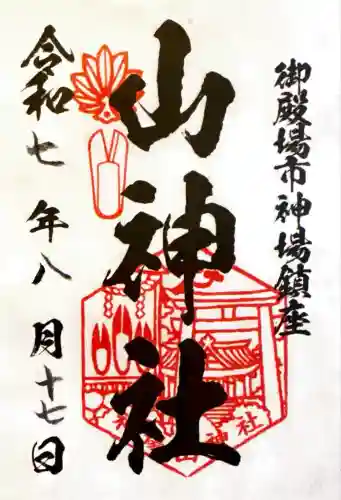 御殿場市神場鎮座
山神社
令和七年八月十七日
山神社